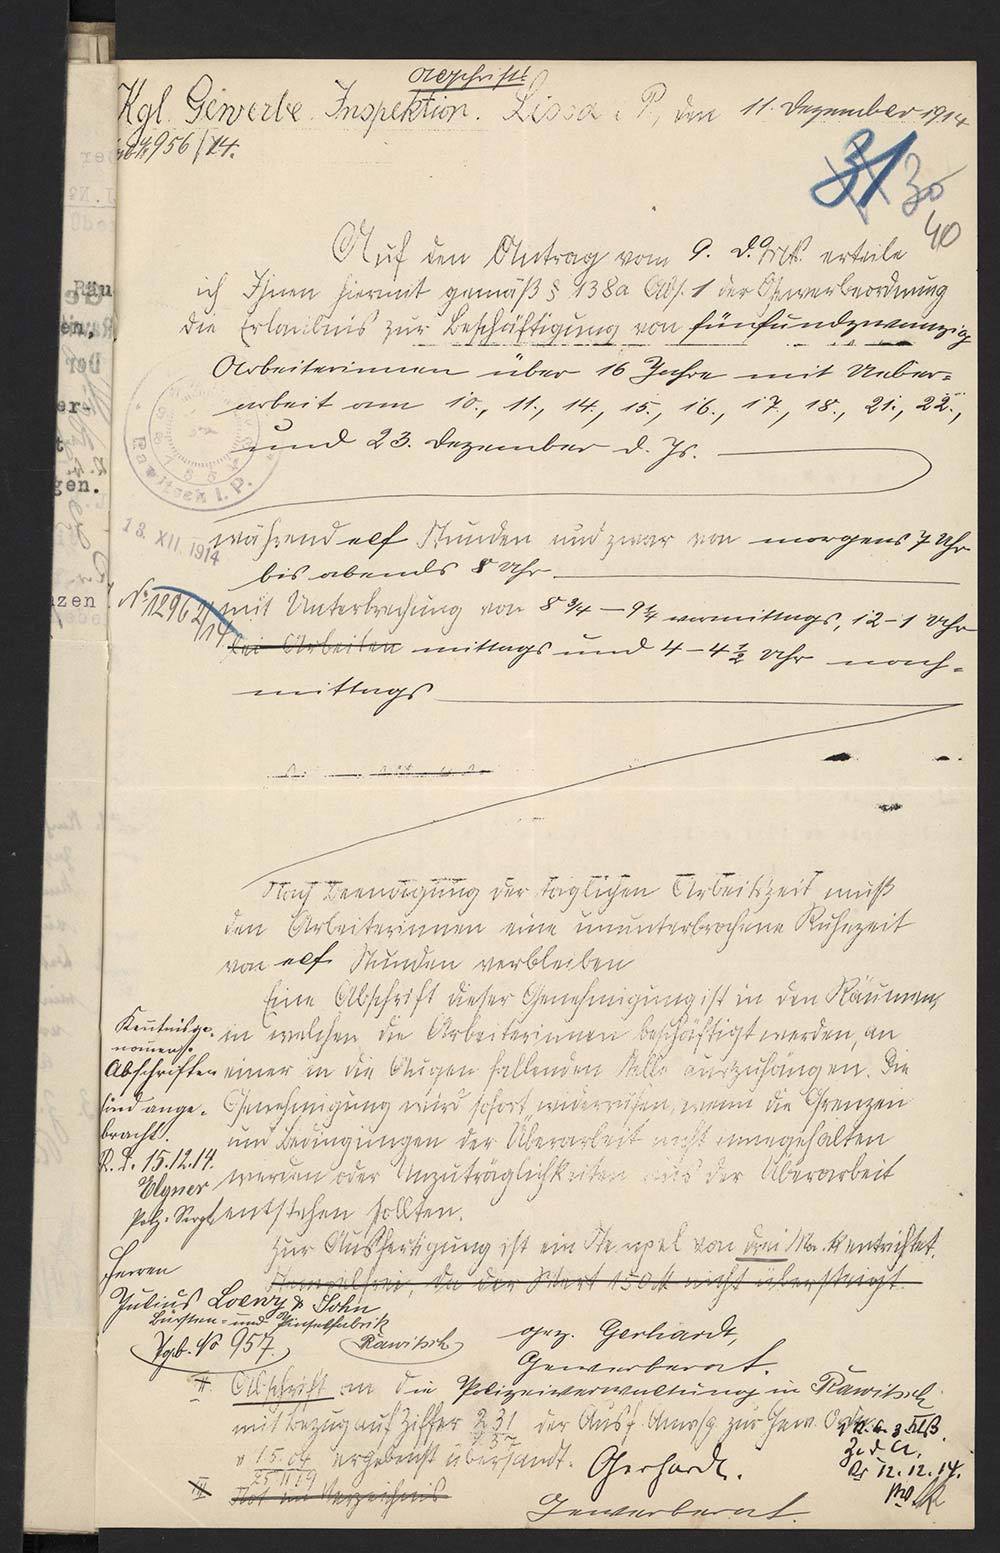 Abschrift
Kgl. Gewerbe Inspektion. Lissa i. P., den 11. Dezember 1914
956/14.
31 30
40
Auf den Antrag vom 9. d. Mts. erteile
ich Ihnen hiermit gemäß § 138a Abs. 1 der Gewerbeordnung
die Erlaubnis zur Beschäftigung von fünfundzwanzig
Arbeiterinnen über 16 Jahre mit Ueber-
arbeit am 10., 11., 14., 15., 16., 17., 18., 21., 22.,
und 23. Dezember d. Js.
Rawitsch i. P.
13. XII. 1914
während elf Stunden und zwar von morgens 7 Uhr
bis abends 8 Uhr
No 1296 2/14
mit Unterbrechung von 8 3/4 – 9 1/4 vormittags, 12–1 Uhr
bei Arbeiten mittags und 4–4 1/2 Uhr nach-
mittags
Nach Beendigung der täglichen Arbeitszeit muß
den Arbeiterinnen eine ununterbrochene Ruhezeit
von elf Stunden verbleiben
Eine Abschrift dieser Genehmigung ist in den Räumen,
in welchen die Arbeiterinnen beschäftigt werden, an
einer in die Augen fallenden Stelle auszuhängen. Die
Genehmigung wird sofort widerrufen, wenn die Grenzen
und Bedingungen der Überarbeit nicht innegehalten
werden oder Unzuträglichkeiten aus der Überarbeit
entstehen sollten.
Kenntnis ge-
nommen.
Abschriften
sind ange-
bracht.
R. d. 15.12.14.
Elgner
Polz. Sergt
Zur Ausfertigung ist ein Stempel von drei Mark entrichtet.
Stempelfrei, da der Wert 150 M nicht übersteigt.
Herren
Julius Loewy & Sohn
Bürsten- und Pinselfabrik
Rawitsch
Tgb. No 957.
gez. Gerhardt,
Gewerberat.
II. Abschrift an die Polizeiverwaltung in Rawitsch
mit Bezug auf Ziffer 231 der Ausf. Anwsg. zur Gew. Ordn.
237
v 1.5.04 ergebenst übersandt.
25 11 09
Gerhardt.
Gewerberat.
III Not im Verzeichnis
Z. d. A.
12.12.14.